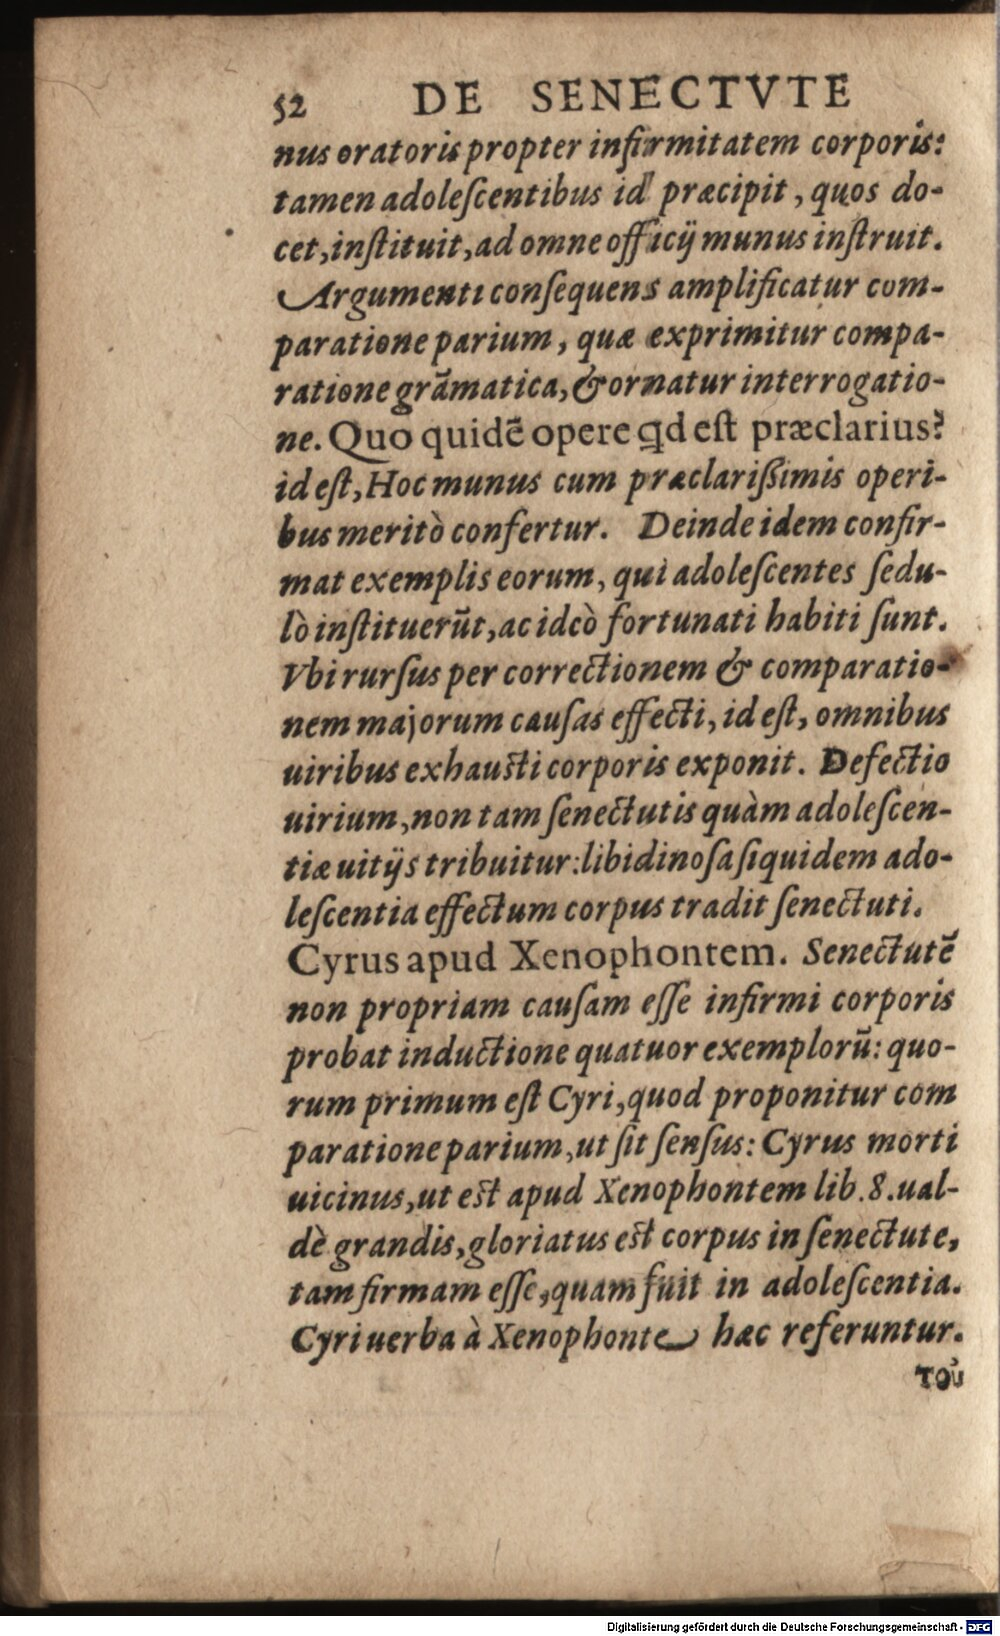 52 DE SENECTVTE
nus oratoris propter infirmitatem corporis:
tamen adoleſcentibus id præcipit, quos do-
cet, inſtituit, ad omne officij munus inſtruit.
Argumenti conſequens amplificatur com-
paratione parium, quæ exprimitur compa-
ratione grãmatica, & ornatur interrogatio-
ne. Quo quidẽ opere qd eſt præclarius?
id eſt, Hoc munus cum præclariſsimis operi-
bus meritò confertur. Deinde idem confir-
mat exemplis eorum, qui adoleſcentes ſedu-
lò inſtituerũt, ac ideò fortunati habiti ſunt.
Vbi rurſus per correctionem & comparatio-
nem majorum cauſas effecti, id eſt, omnibus
uiribus exhauſti corporis exponit. Defectio
uirium, non tam ſenectutis quàm adoleſcen-
tiæ uitijs tribuitur: libidinoſa ſiquidem ado-
leſcentia effectum corpus tradit ſenectuti.
Cyrus apud Xenophontem. Senectutẽ
non propriam cauſam eſſe infirmi corporis
probat inductione quatuor exemplorũ: quo-
rum primum eſt Cyri, quod proponitur com
paratione parium, ut ſit ſenſus: Cyrus morti
uicinus, ut eſt apud Xenophontem lib. 8. ual-
dè grandis, gloriatus eſt corpus in ſenectute,
tam firmam eſſe, quam fuit in adoleſcentia.
Cyri uerba à Xenophonte hæc referuntur.
τοὐ
Digitalisierung gefördert durch die Deutsche Forschungsgemeinschaft - DFG